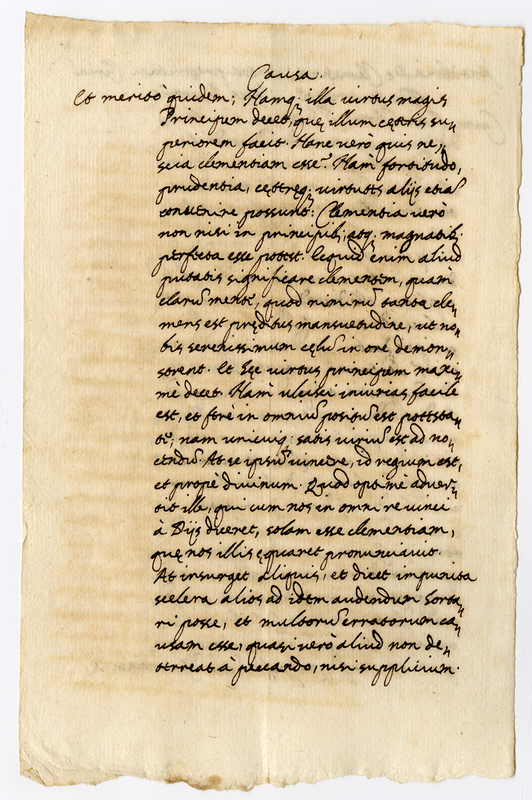 Causa.
Et meritò quidem; Namq; illa virtus magis
Principem decet, quę illum cęteris su„
periorem facit. Hanc verò quis ne„
scia clementiam esse? Nam fortitudo,
prudentia, cęteręq; virtutes alijs etiã
convenire possunt: Clementia verò
non nisi in principib; atq; magnatib;
perfecta esse potest. Ecquid enim aliud
putatis significare clementem, quàm
clarũ mente, quod nimirũ tanta cle„
mens est pręditus mansuetudine, ut no„
bis serenissimum cęlũ in ore demon„
strent. Et hęc virtus principem maxi„
mè decet. Nam ulcisci iniurias facile
est, et ferè in omniũ positũ est potesta„
te, nam unicuiq; satis viriũ est ad no„
cendũ. At se ipsũ vincere, id regium est,
et propè divinum. Quod optimè adver„
tit ille, qui cum nos in omni re vinci
à Dijs diceret, solam esse clementiam,
quę nos illis ęquaret pronunciavit.
At insurget aliquis, et dicet impunita
scelera alios ad idem audendum horta„
ri posse, et multorũ erratorum ca„
usam esse, quasi verò aliud non de„
terreat à peccando, nisi supplicium.